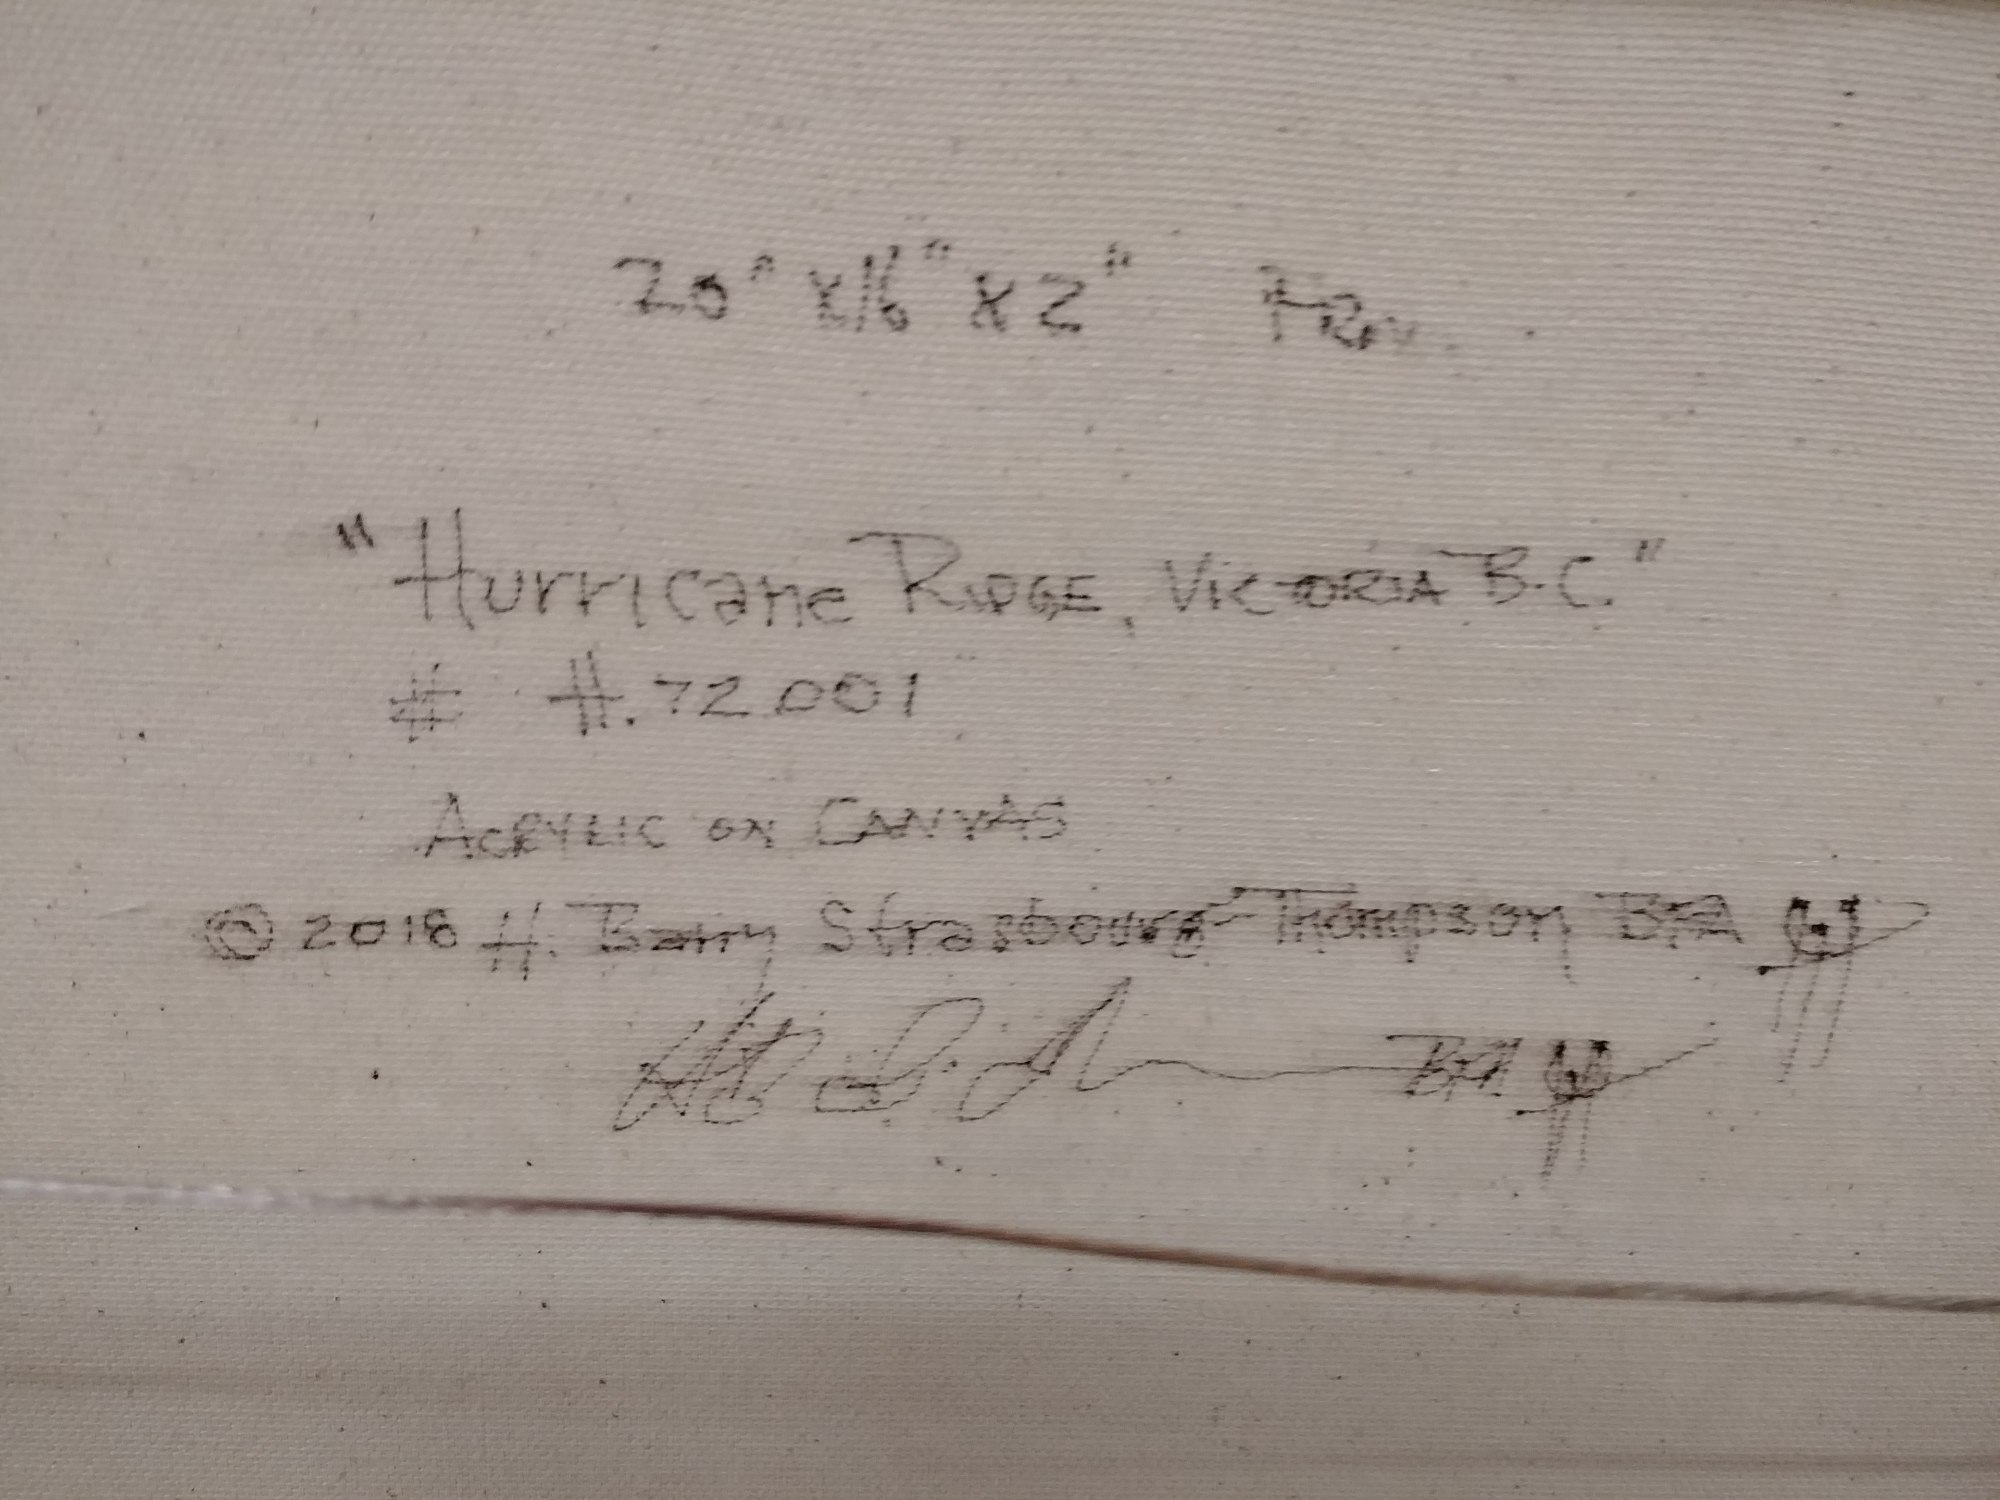 20" x 16" x 2"
"Hurricane Ridge, Victoria B.C."
# H.72001
Acrylic on Canvas
© 2018 H. Barry Strasbourg-Thompson BFA
BFA